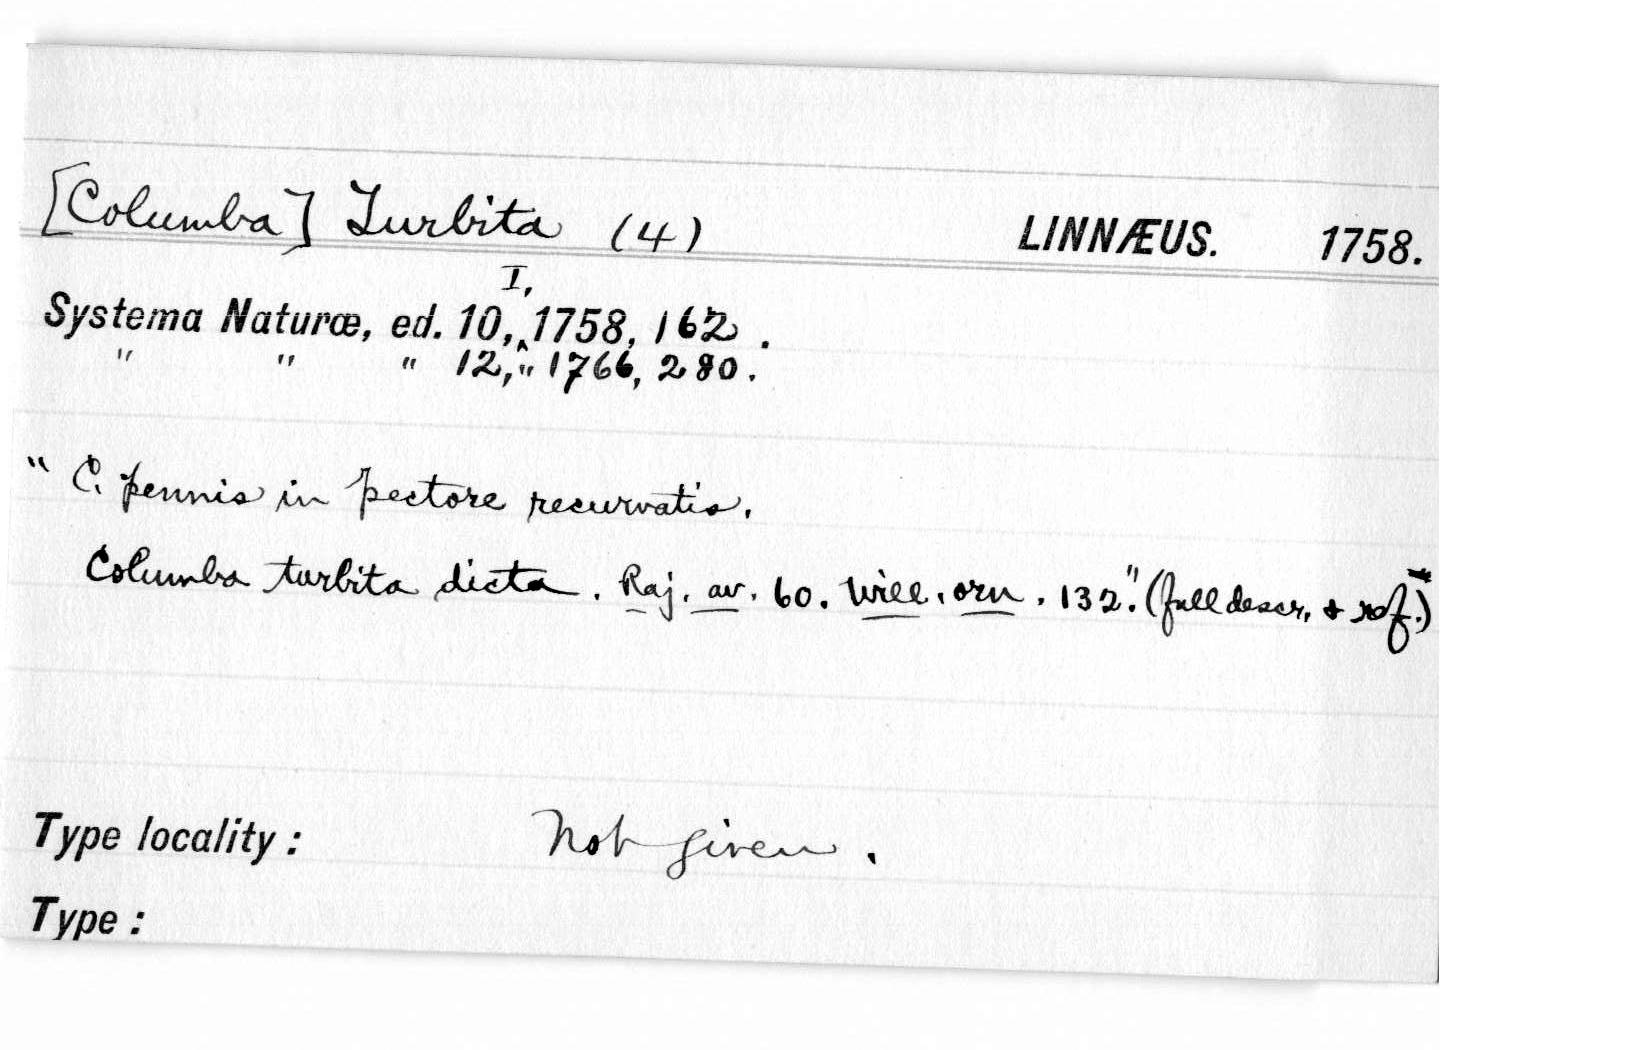 [Columba] Turbita (4) LINNÆUS. 1758.
I,
Systema Naturæ, ed. 10,‸1758, 162.
" " " 12, " 1766, 280.
" C. pennis in pectore recurvatis.
Columba turbita dicta. Raj. av. 60. Will. orn. 132." (full descr. & ref.)
Type locality: Not given.
Type: